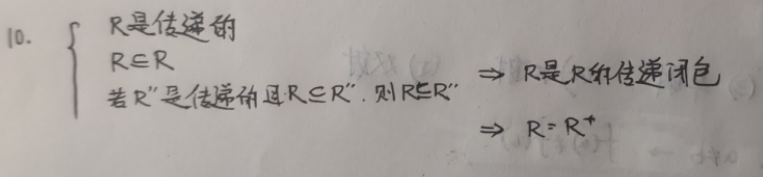 10. { R是传递的
R⊆R
若R''是传递的且R⊆R'',则R⊆R'' ⇒ R是R的传递闭包
⇒ R=R⁺